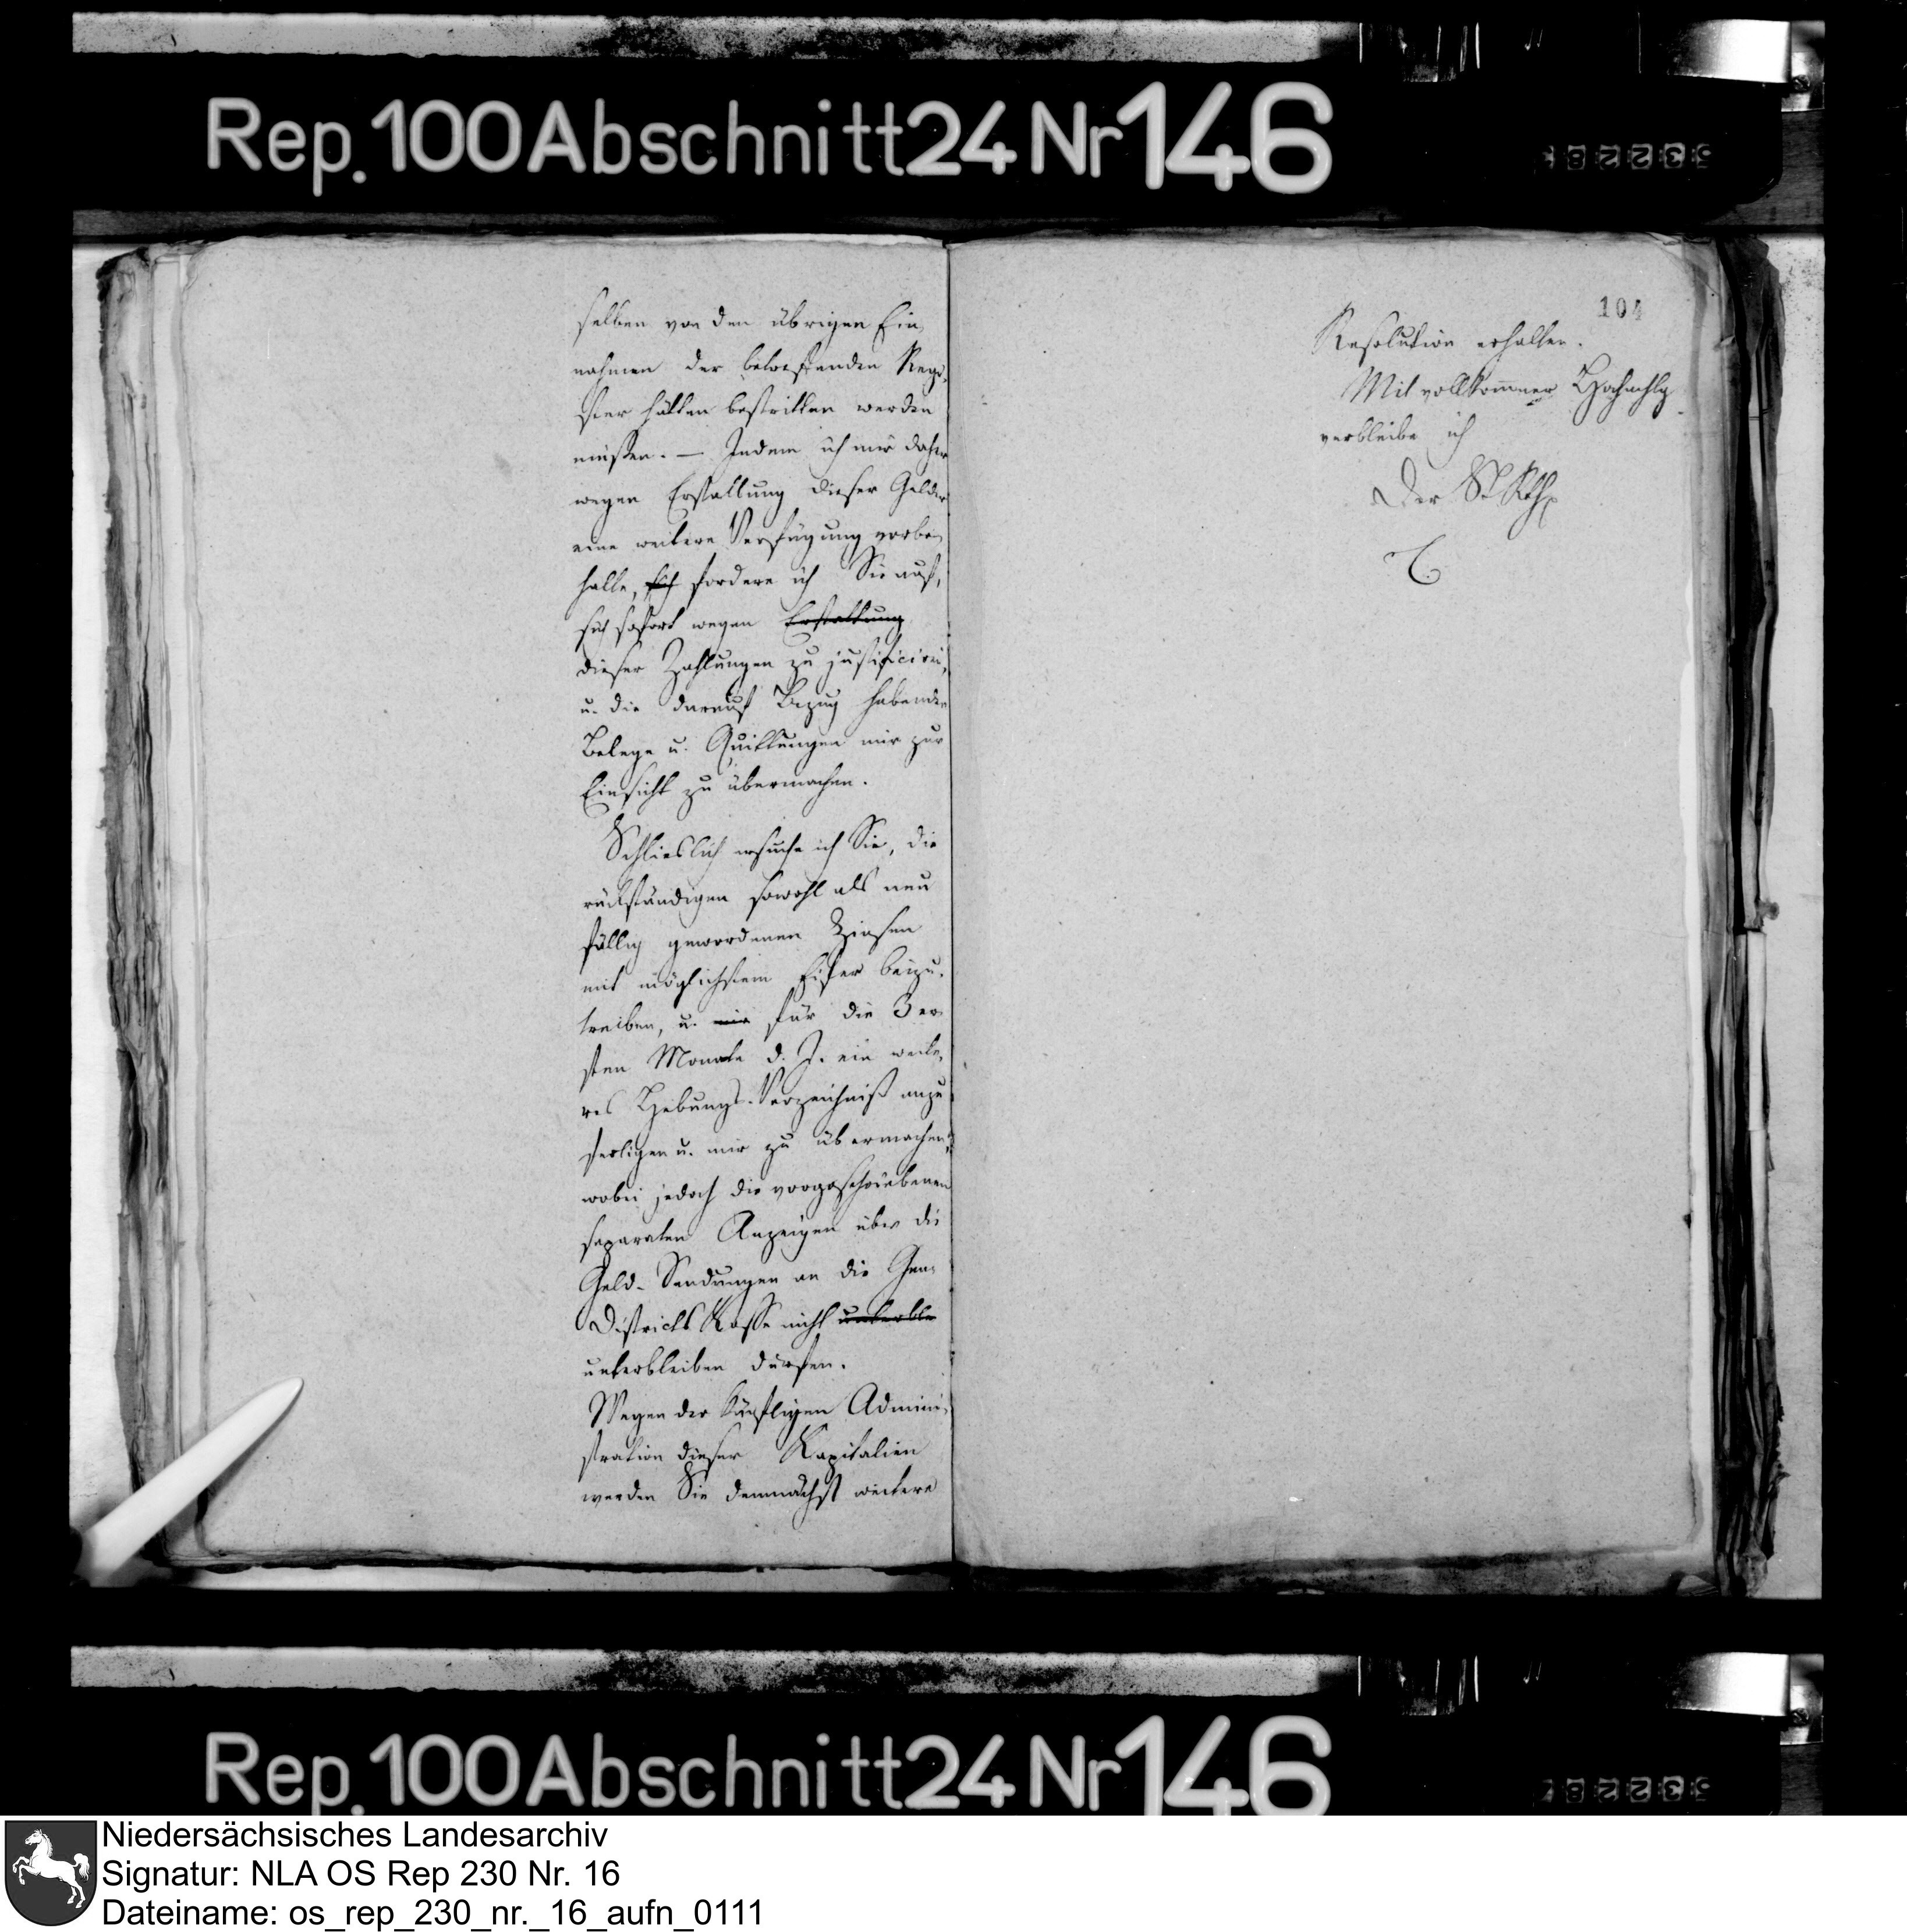 Rep. 100 Abschnitt 24 Nr 146
selben von den übrigen Ein-
nahmen der betreffenden Regi-
ster hätten bestritten werden
müßen. — Indem ich mir daher
wegen Erstattung dieser Gelder
eine weitere Verfügung vorbe-
halte, sich fordere ich Sie auf,
sich sofort wegen Erstattung
dieser Zahlungen zu justificiren,
u. die darauf Bezug habenden
Belege u. Quittungen mir zur
Einsicht zu übermachen.
Schlieslich ersuche ich Sie, die
rükständigen sowohl als neu
fällig gewordenen Zinsen
mit möglichstem Eifer beizu-
treiben, u. mir für die 3 er-
sten Monate d. J. ein weite-
res Hebungs-Verzeichniß anzu
fertigen u. mir zu übermachen,
wobei jedoch die vorgeschriebenen
separaten Anzeigen über die
Geld-Sendungen an die Gen-
Districts Kasse nicht unterble
unterbleiben dürfen.
Wegen der künftigen Admini-
stration dieser Kapitalien
werden Sie demnächst weitere
104
Resolution erhalten.
Mit vollkommner Hochachtg
verbleibe ich
Der
Rep. 100 Abschnitt 24 Nr 146
Niedersächsisches Landesarchiv
Signatur: NLA OS Rep 230 Nr. 16
Dateiname: os_rep_230_nr._16_aufn_0111